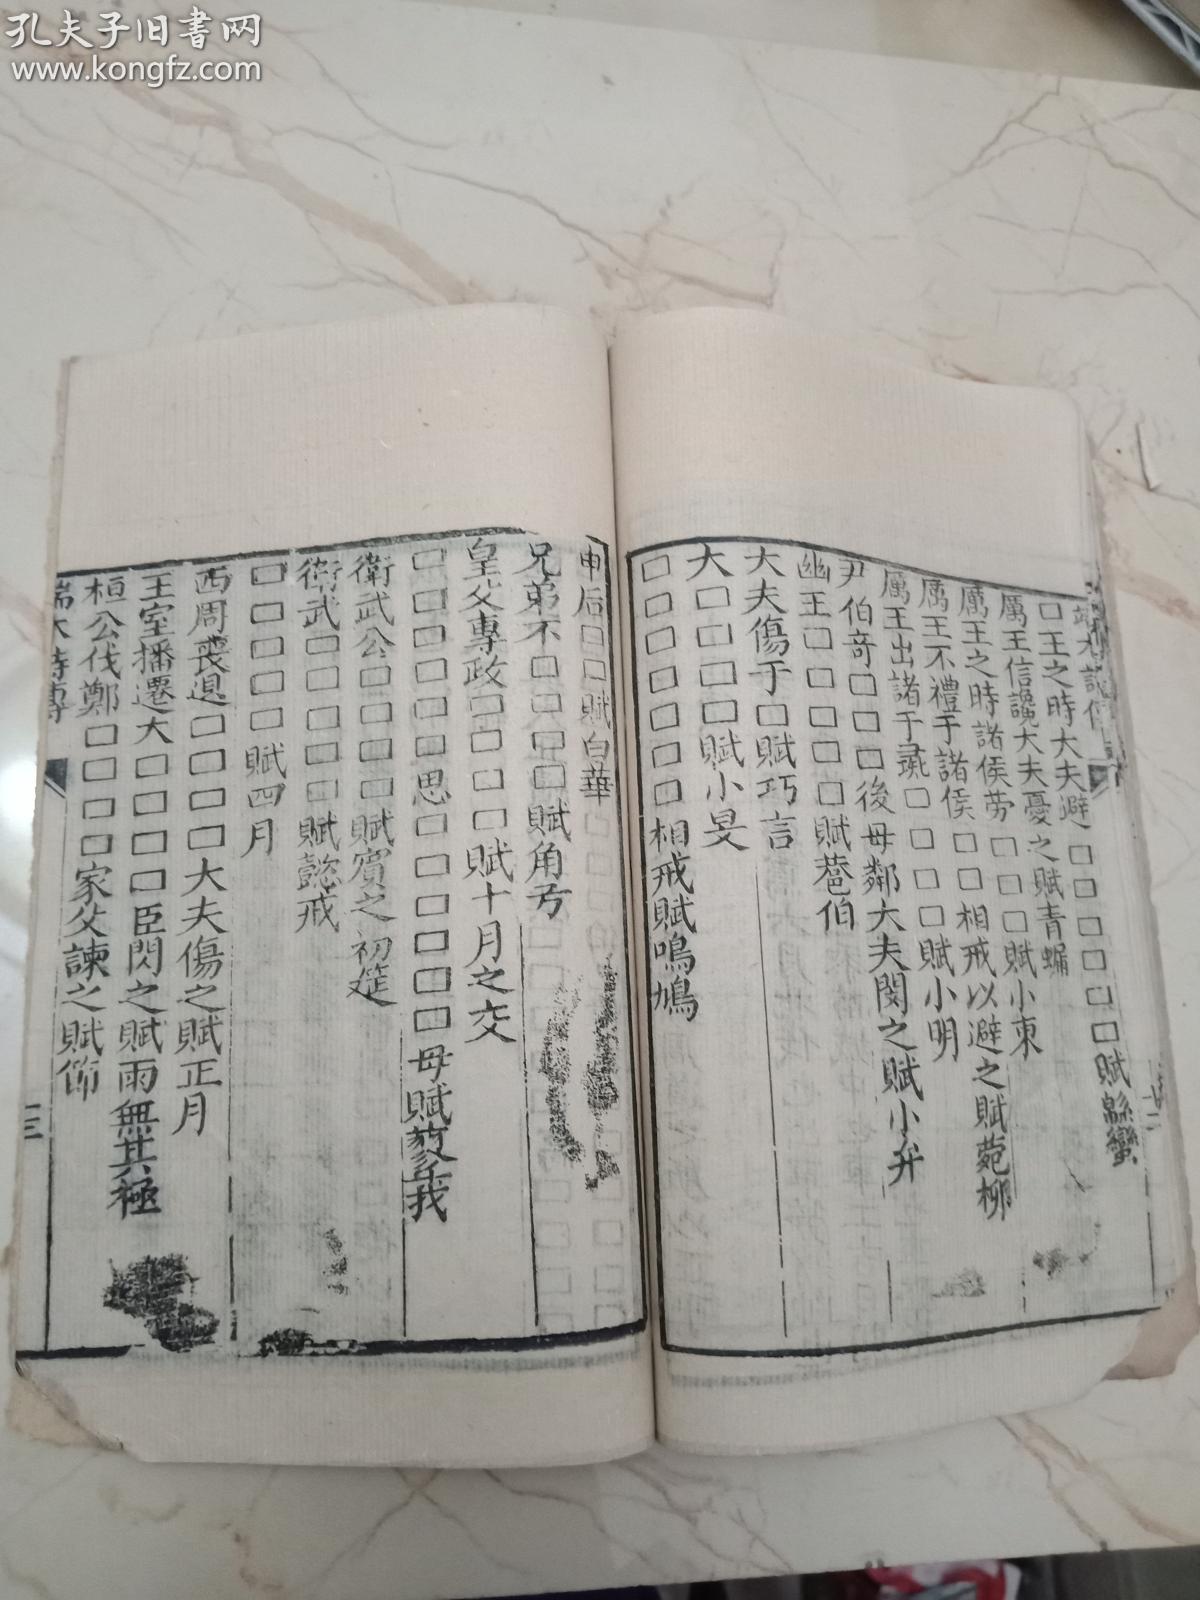 孔夫子旧书网
www.kongfz.com
□王之時大夫避□□□□□□賦緜蠻
厲王信讒大夫憂之賦青蝿
厲王之時諸侯勞□□□賦小東
厲王不禮于諸侯□□相戒以避之賦菀柳
厲王出諸于彘□□□□賦小明
尹伯奇□□□後母鄰大夫閔之賦小弁
幽王□□□□□賦巷伯
大夫傷于□賦巧言
大□□□□賦小旻
□□□□□□□相戒賦鳴鳩
申后□□□賦白華
兄弟不□□□□賦角弓
皇父專政□□□□賦十月之交
□□□□□□思□□□□□母賦蓼莪
衛武公□□□□賦賓之初筵
衛武□□□□□賦懿戒
□□□□□賦四月
西周喪□□□□大夫傷之賦正月
王室播遷大□□□□□臣閔之賦雨無其極
桓公伐鄭□□□□□家父諫之賦節
端木詩傳
三